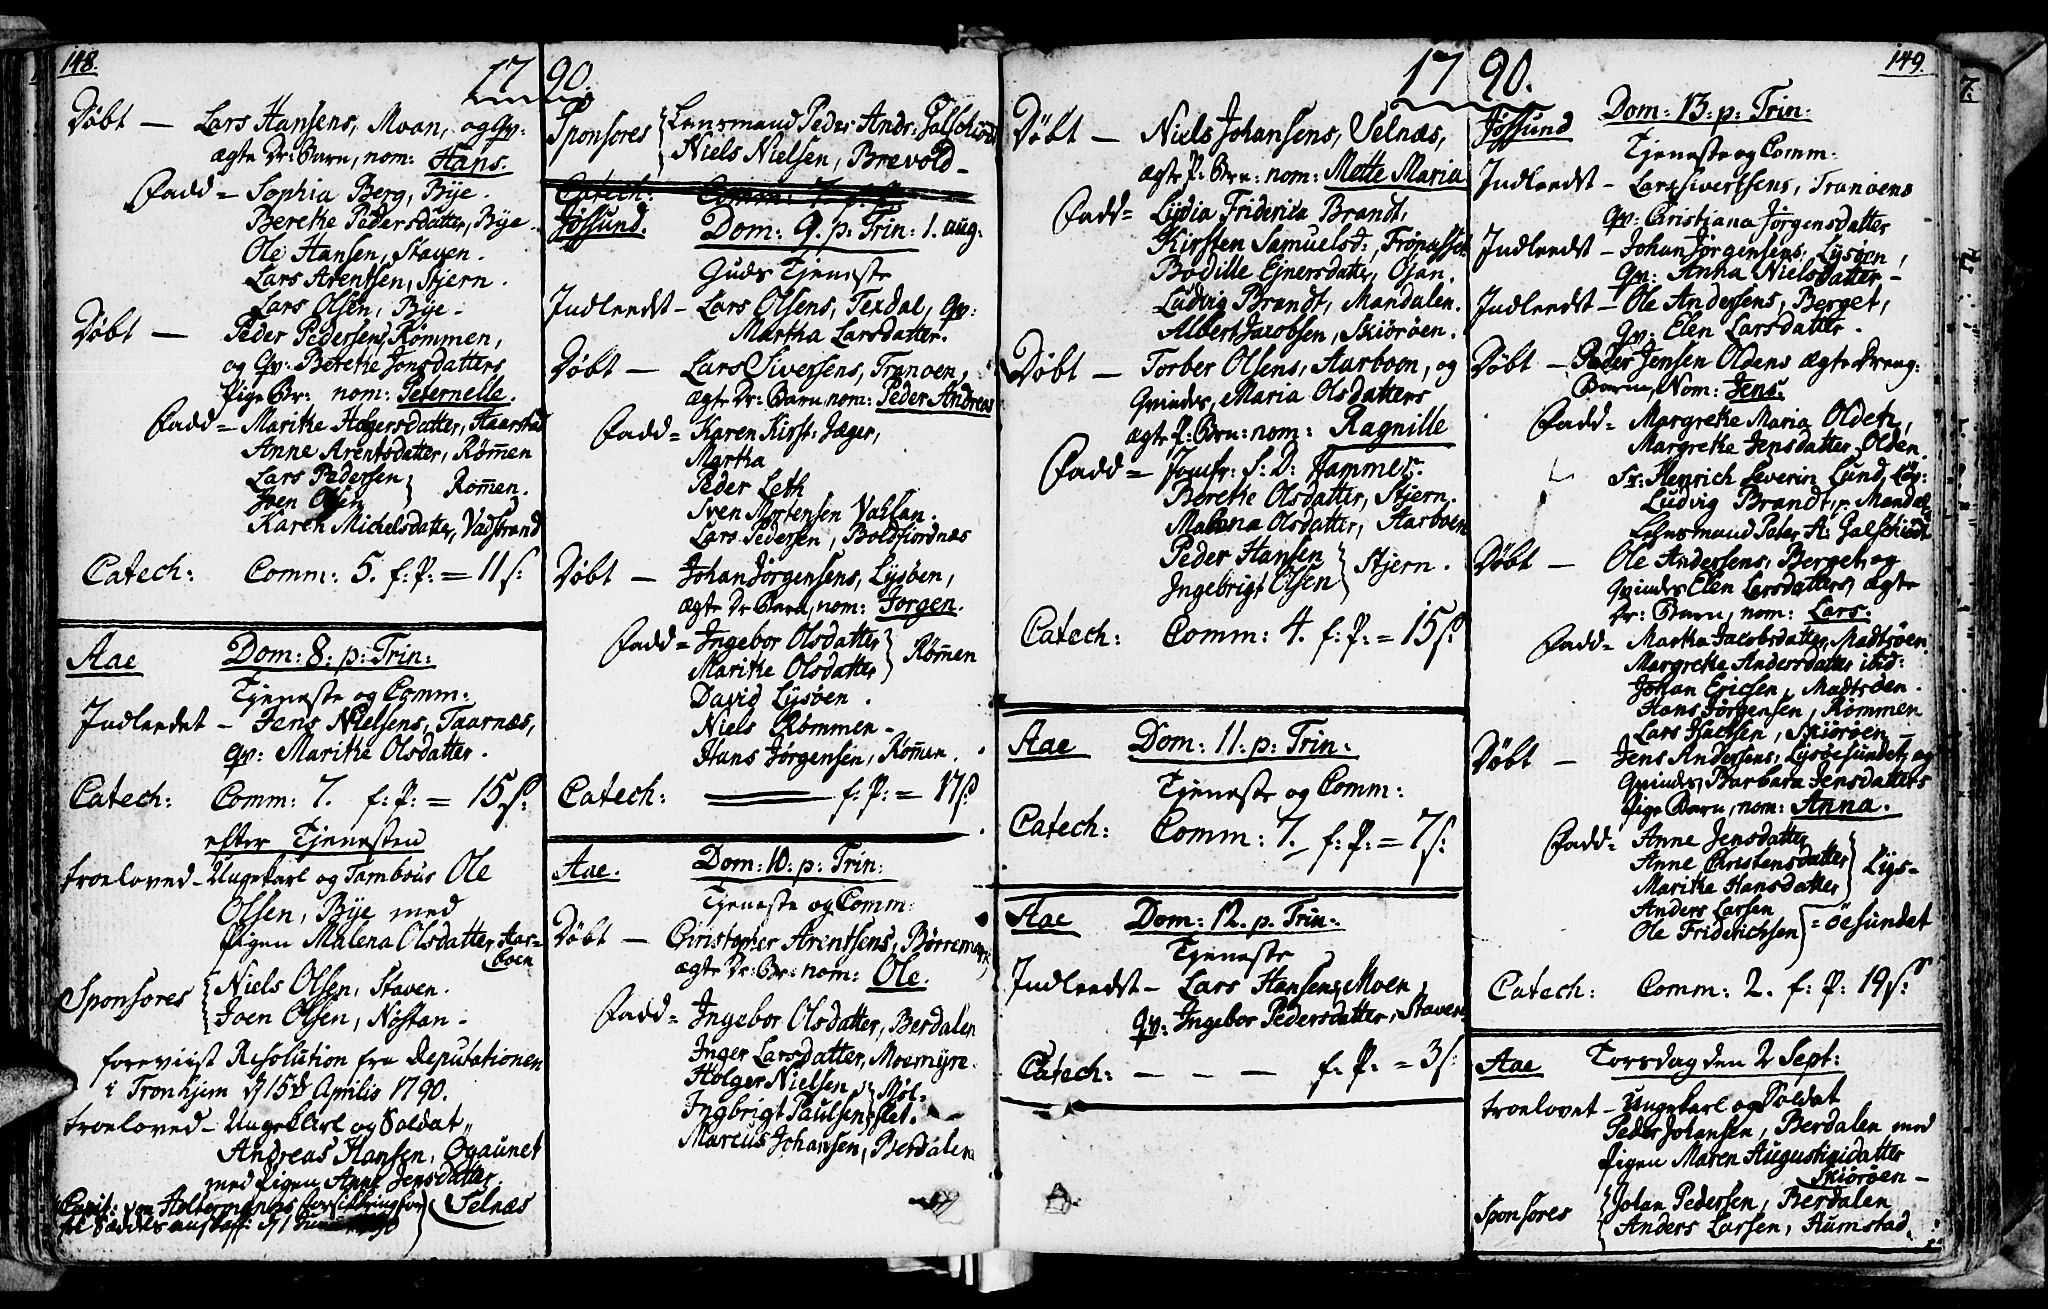 148.
17 90.
Døbt — Lars Hansens, Moan, og Qv:
ægte Dr: Barn, nom: Hans.
Fadd = Sophia Berg, Bÿe.
Berethe Pedersdatter, Bÿe.
Ole Hansen, Staven.
Lars Arentsen, Stjern.
Lars Olsen, Bÿe.
Døbt — Peder Pedersens, Rømmen,
og Qv: Berethe Jonsdatters
Pige Br: nom: Peternelle.
Fadd = Marithe Holgersdatter, Haarstad
Anne Arentsdatter, Røm̄en
Lars Pedersen
Joen Olsen } Røm̄en.
Karen Michelsdatter, Vadstrand
Catech: Comm: 5. f: P: = 11 s:
Aae Dom: 8: p: Trin:
Tjeneste og Comm:
Indleedet — Jens Nielsens, Taarnæs,
qv: Marithe Olsdatter.
Catech: Comm: 7. f: P: = 15 s:
efter Tjenesten
troeloved — Ungekarl og Tambour Ole
Olsen, Bÿe med
Pigen Malena Olsdatter, Aar=
boen
Sponsores { Niels Olsen, Staven.
Joen Olsen, Nøstan.
foreviist Resolution fra Deputationen
i Tronhjem d 15de Aprilis 1790.
troeloved — Ungekarl og Soldat
Andreas Hansen, Ogaunet
med Pigen Anne Jensdatter
Selnæs
Sponsores { Lensmand Peder Andr: Galschiødt
Niels Nielsen, Brevold —
Catech: Comm: 7.
Jøssund. Dom: 9. p: Trin: 1. aug.
Guds Tjeneste
Indleedt — Lars Olsens, Texdal, qv:
Martha Larsdatter.
Døbt — Lars Siversens, Tranoen,
ægte Dr: Barn nom: Peder Andreas
Fadd = Karen Kirst: Jæger,
Martha
Peder Leth
Iven Mortensen Vallan.
Lars Pedersen, Boldfiordnæs
Døbt — Johan Jørgensens, Lysøen,
ægte Dr Barn, nom: Jørgen.
Fadd = Ingebor Olsdatter
Marithe Olsdatter } Røm̄en
David Lysøen.
Niels Rømmen —
Hans Jørgensen, Røm̄en.
Catech: ——— f: P: = 17 s:
Aae. Dom: 10: p: Trin:
Tjeneste og Comm:
Døbt — Christopher Arentsens, Børremark,
ægte Dr: Br: nom: Ole.
Fadd = Ingebor Olsdatter, Berdalen
Inger Larsdatter, Moemÿre.
Holger Nielsen
Ingbrigt Paulsen } Møl=
slet.
Marcus Johansen, Berdalen
149.
17 90.
Døbt — Niels Johansens, Selnæs,
ægte P: Brn: nom: Mette Maria
Fadd = Lydia Friderica Brandt,
Kirsten Samuelsd:,
Bodille Ejnersdatter, Ojan.
Ludvig Brandt, Mandalen.
Albert Jacobsen, Skiørøen.
Døbt — Torber Olsens, Aarboen, og
Qvindes, Maria Olsdatters
ægte P: Brn: nom: Ragnille
Fadd = Jomfr: S: D: Hammer.
Berethe Olsdatter, Stjern.
Malena Olsdatter, Aarboen
Peder Hansen
Ingebrigt Olsen } Stjern.
Catech: Comm: 4. f: P: = 15 s:
Aae Dom: 11: p: Trin:
Tjeneste og Comm:
Catech: Comm: 7. f: P: = 7 s:
Aae Dom: 12. p. Trin:
Tjeneste
Indleedt — Lars Hansens, Moen
qv: Ingebor Pedersdatter, Staven
Catech: — — — f. P. = 3 s:
Jøssund Dom: 13. p: Trin:
Tjeneste og Comm:
Indleedt — Lars Sivertsens, Tranøens
qv: Christiana Jørgensdatter
Indleedt — Johan Jørgensens, Lysøen,
qv: Anna Nielsdatter —
Indleedt — Ole Andersens, Berget,
qv: Elen Larsdatter.
Døbt — Peder Jensen Oldens ægte Dreng:
Barn, Nom: Jens.
Fadd = Margrethe Maria Oldeth,
Margrethe Jensdatter Olden.
Sr: Henrich Severin Lund,
Ludvig Brandt, Mandal
Lehnsmand Peter A: Galschiødt
Døbt — Ole Andersens, Berget, og
Qvindes Elen Larsdatters, ægte
Dr: Barn, nom: Lars.
Fadd = Martha Jacobsdatter, Madtsøen
Margrethe Andersdatter ibid:
Johan Ericsen, Madtsøen.
Hans Jørgensen, Rømmen
Lars Isacsen, Skiørøen —
Døbt — Jens Andersens, Lysøesundet, og
Qvindes, Barbara Jensdatters
Pige Barn, nom: Anna.
Fadd = Anne Jensdatter
Anne Christensdatter
Maritha Hansdatter } Lÿs=
Anders Larsen
Ole Friderichsen } = øesundet
Catech: Comm: 2. f: P: 19 s:
Aae Torsdag den 2 Sept:
troelovet — Ungekarl og Soldat
Peder Johansen, Berdalen med
Pigen Maren Augustinidatter
Skiørøen —
Sponsores { Johan Pedersen, Berdalen
Anders Larsen, Aumstad.